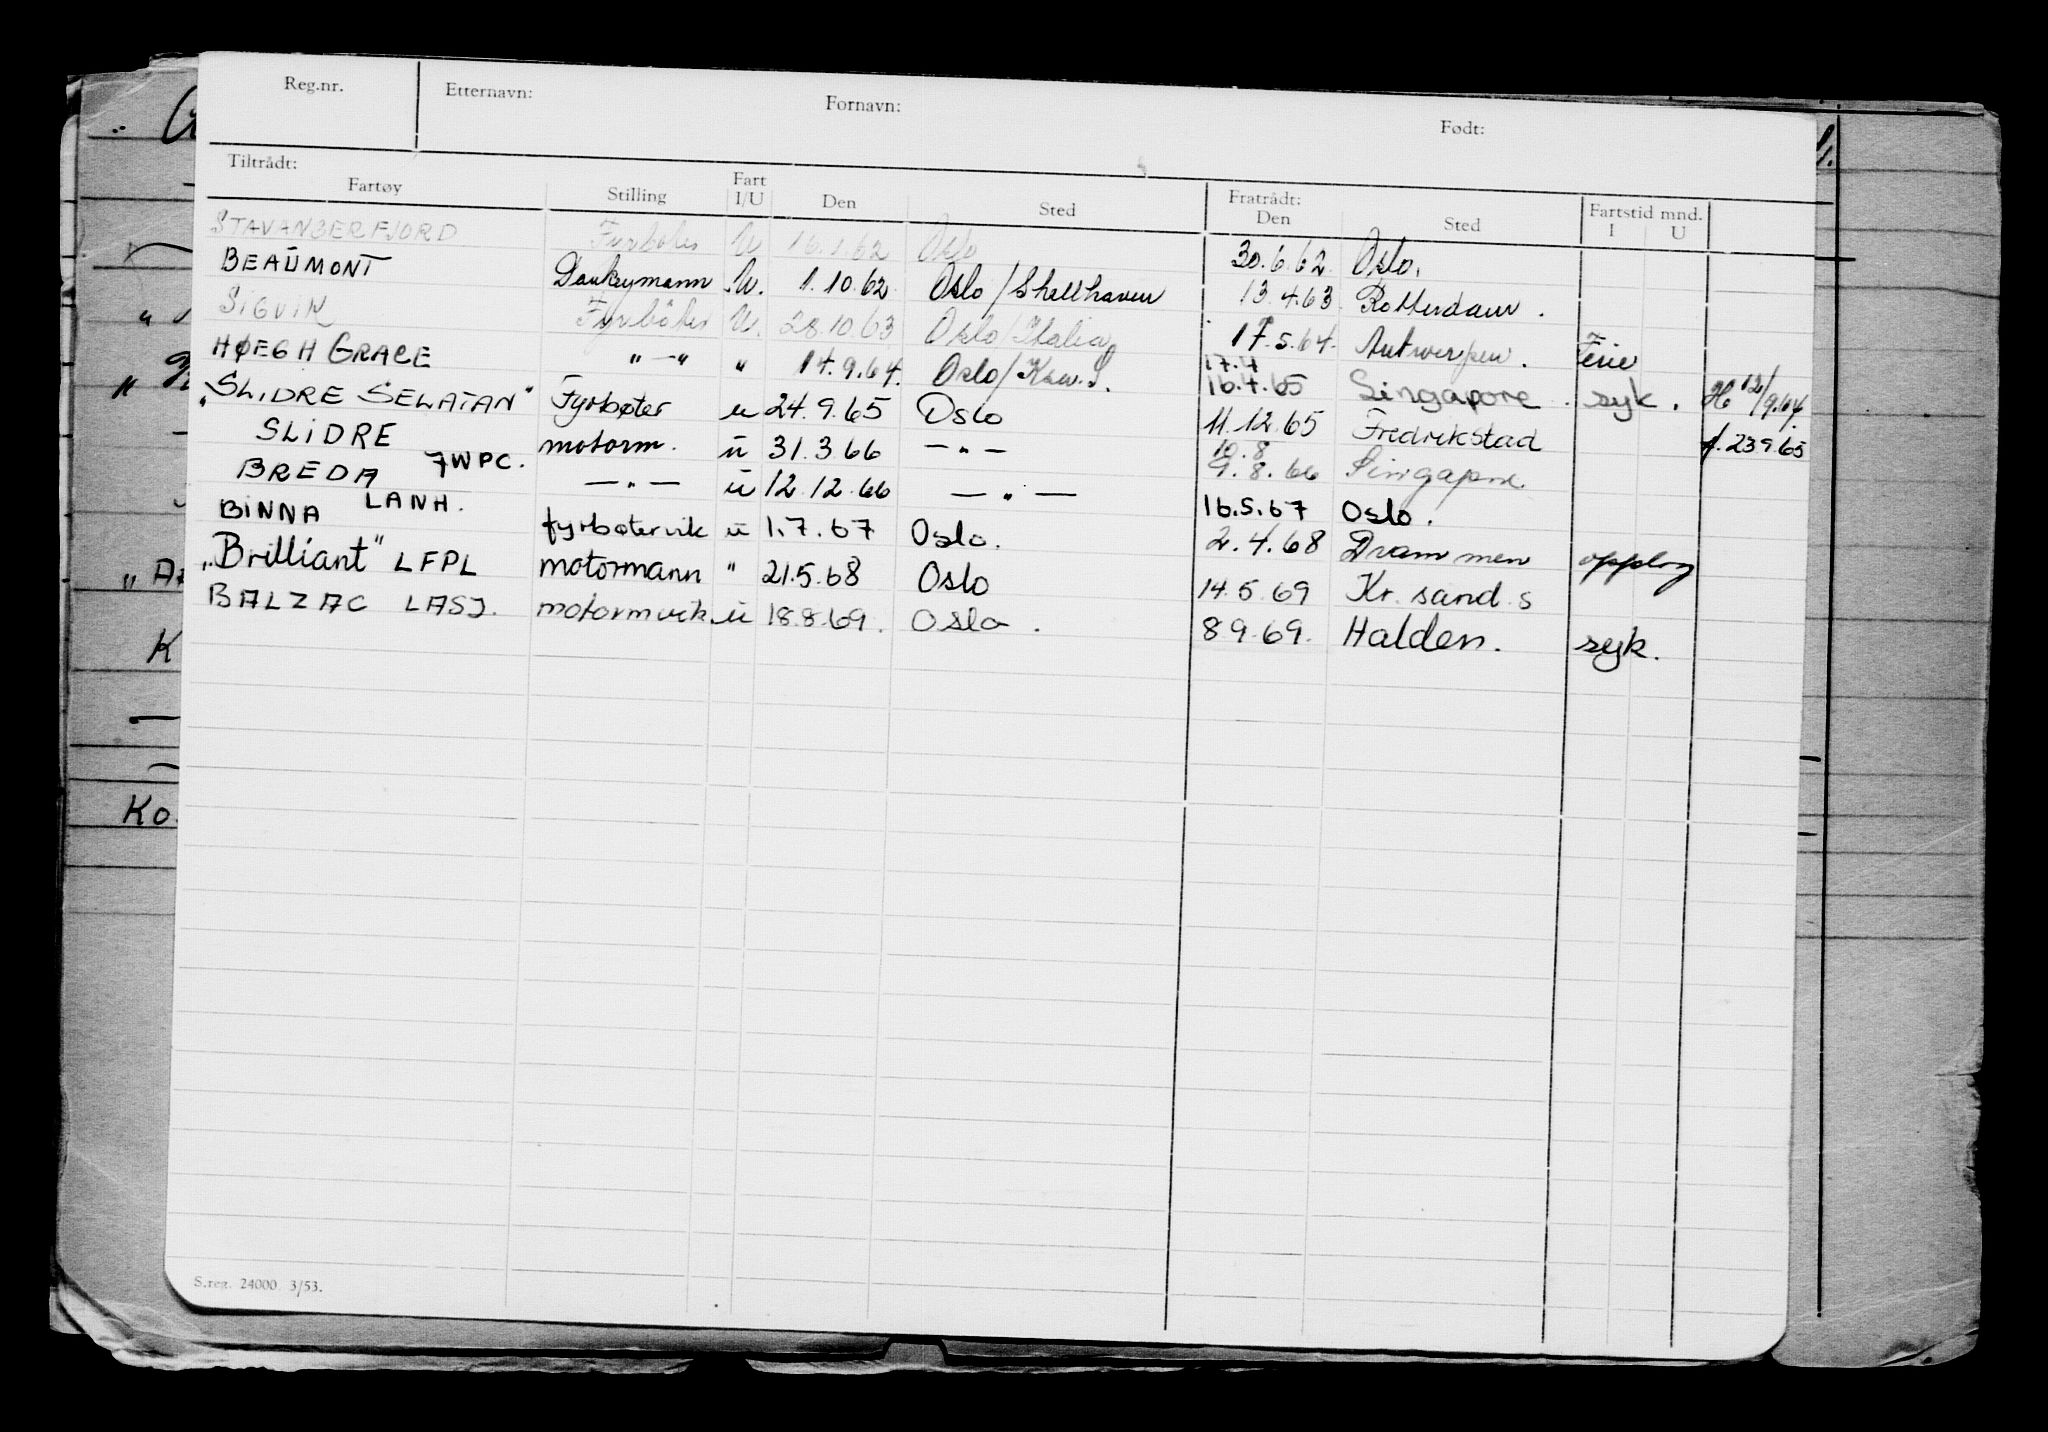 Reg.nr. Etternavn: Fornavn: Født:
Tiltrådt: Fratrådt:
Fartøy Stilling Fart I/U Den Sted Den Sted Fartstid mnd. I U
STAVANGERFJORD Fyrböter U 16.1.62 Oslo 30.6.62. Oslo.
BEAUMONT Donkeymann U. 1.10.62 Oslo/Shellhaven 13.4.63 Rotterdam.
SIGVIN Fyrböter U. 28.10.63 Oslo/Italia 17.5.64. Antwerpen. Ferie
HØEGH GRACE "—" " 14.9.64. Oslo/Kaw.S. 17.4 16.4.65 Singapore. syk. 12/9.64.
"SLIDRE SELATAN" Fyrbøter u 24.9.65 Oslo 11.12.65 Fredrikstad f. 23.9.65
SLIDRE 7WPC. motorm. u 31.3.66 —"— 10.8 9.8.66 Singapore
BREDA LANH. —"— u 12.12.66 —"— 16.5.67 Oslo.
BINNA fyrbøtervik u 1.7.67 Oslo. 2.4.68 Drammen opplag
"Brilliant" LFPL motormann " 21.5.68 Oslo 14.5.69 Kr.sand.s
BALZAC LASJ. motormvik. u 18.8.69. Oslo. 8.9.69. Halden. syk.
K
Ko.
S.reg. 24000. 3/53.